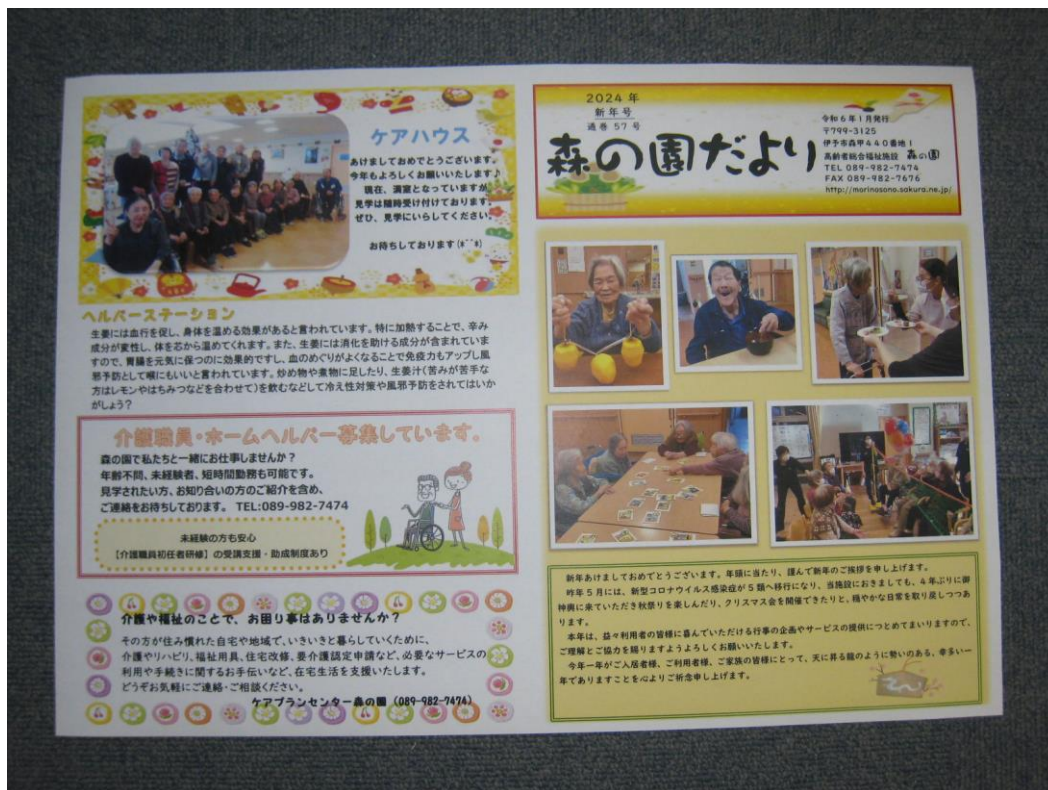 ケアハウス
あけましておめでとうございます。
今年もよろしくお願いいたします♪
現在、満室となっていますが
見学は随時受け付けております。
ぜひ、見学にいらしてください。
お待ちしております(*^^*)
ヘルパーステーション
生姜には血行を促し、身体を温める効果があると言われています。特に加熱することで、辛み
成分が変性し、体を芯から温めてくれます。また、生姜には消化を助ける成分が含まれていま
すので、胃腸を元気に保つのに効果的ですし、血のめぐりがよくなることで免疫力もアップし風
邪予防として喉にもいいと言われています。炒め物や煮物に足したり、生姜汁(苦みが苦手な
方はレモンやはちみつなどを合わせて)を飲むなどして冷え性対策や風邪予防をされてはいか
がしょう?
介護職員・ホームヘルパー募集しています。
森の園で私たちと一緒にお仕事しませんか?
年齢不問、未経験者、短時間勤務も可能です。
見学されたい方、お知り合いの方のご紹介を含め、
ご連絡をお待ちしております。 TEL:089-982-7474
未経験の方も安心
【介護職員初任者研修】の受講支援・助成制度あり
介護や福祉のことで、お困り事はありませんか?
その方が住み慣れた自宅や地域で、いきいきと暮らしていくために、
介護やリハビリ、福祉用具、住宅改修、要介護認定申請など、必要なサービスの
利用や手続きに関するお手伝いなど、在宅生活を支援いたします。
どうぞお気軽にご連絡・ご相談ください。
ケアプランセンター森の園 (089-982-7474)
2024 年
新年号
通巻 57 号
森の園だより
令和6年1月発行
〒799-3125
伊予市森甲440番地1
高齢者総合福祉施設 森の園
TEL 089-982-7474
FAX 089-982-7676
http://morinosono.sakura.ne.jp/
新年あけましておめでとうございます。年頭に当たり、謹んで新年のご挨拶を申し上げます。
昨年5月には、新型コロナウイルス感染症が5類へ移行になり、当施設におきましても、4年ぶりに御
神輿に来ていただき秋祭りを楽しんだり、クリスマス会を開催できたりと、穏やかな日常を取り戻しつつあ
ります。
本年は、益々利用者の皆様に喜んでいただける行事の企画やサービスの提供につとめてまいりますので、
ご理解とご協力を賜りますようよろしくお願いいたします。
今年一年がご入居者様、ご利用者様、ご家族の皆様にとって、天に昇る龍のように勢いのある、幸多い一
年でありますことを心よりご祈念申し上げます。